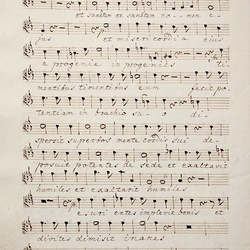 et sanctum et sanctum no- men e-
jus et misericordia ejus
a progenie in progenies ti-
mentibus timentibus eum fecit po-
tentiam in brachio su- o di-
spersit superbos mente cordis sui de-
posuit potentes de sede et exaltavit
humiles et exaltavit humiles
e- suri entes implevit bonis et
divites dimisit inanes